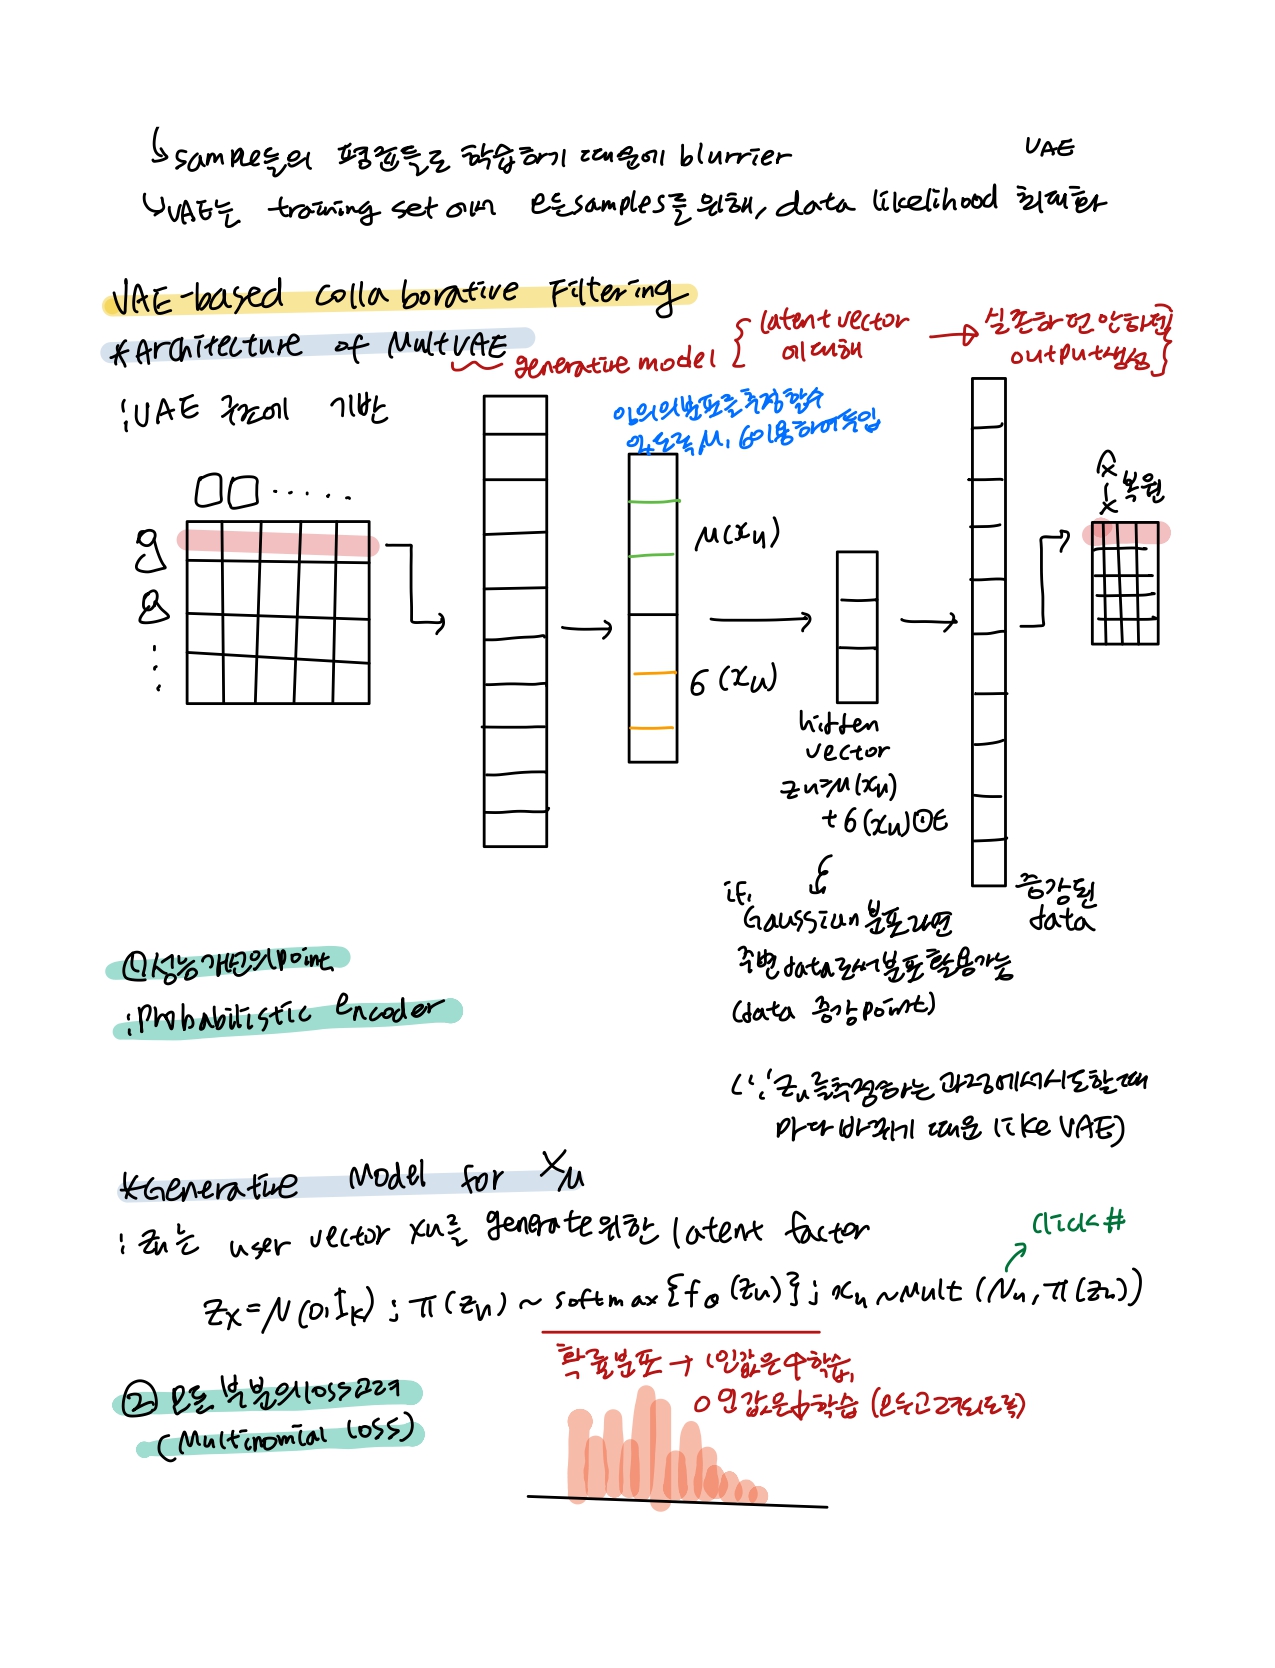 ↳ sample들의 평균들로 학습하기 때문에 blurrier
VAE
↳ VAE는 training set 에서 모든 samples를 위해, data likelihood 최대화
VAE-based Collaborative Filtering
*Architecture of MultVAE
generative model { latent vector 에 대해 → 실존하던 안하던 output 생성 }
: VAE 구조에 기반
임의의 분포를 추정할수
있도록, μ, σ이용하여 투입
□□ ......
μ(xu)
σ(xu)
x̂
↓ 복원
x
hidden
vector
zu=μ(xu)
+σ(xu)⊙ε
증강된
data
if,
Gaussian 분포라면
주변 data로서 분포 활용가능
(data 증강 point)
① 성능개선의 point
: Probabilistic encoder
(∵ zu를 추정하는 과정에서 시도할 때
마다 바뀌기 때문 like VAE)
*Generative Model for Xu
: zu는 user vector xu를 generate 위한 latent factor
click #
zx = N(0, Ik) ; π(zu) ~ softmax{fθ(zu)} ; xu ~ Mult (Nu, π(zu))
확률분포 → 1인값은 ↑학습,
0인값은 ↓학습 (모두 고려되도록)
② 모든 부분의 loss 고려
(Multinomial loss)